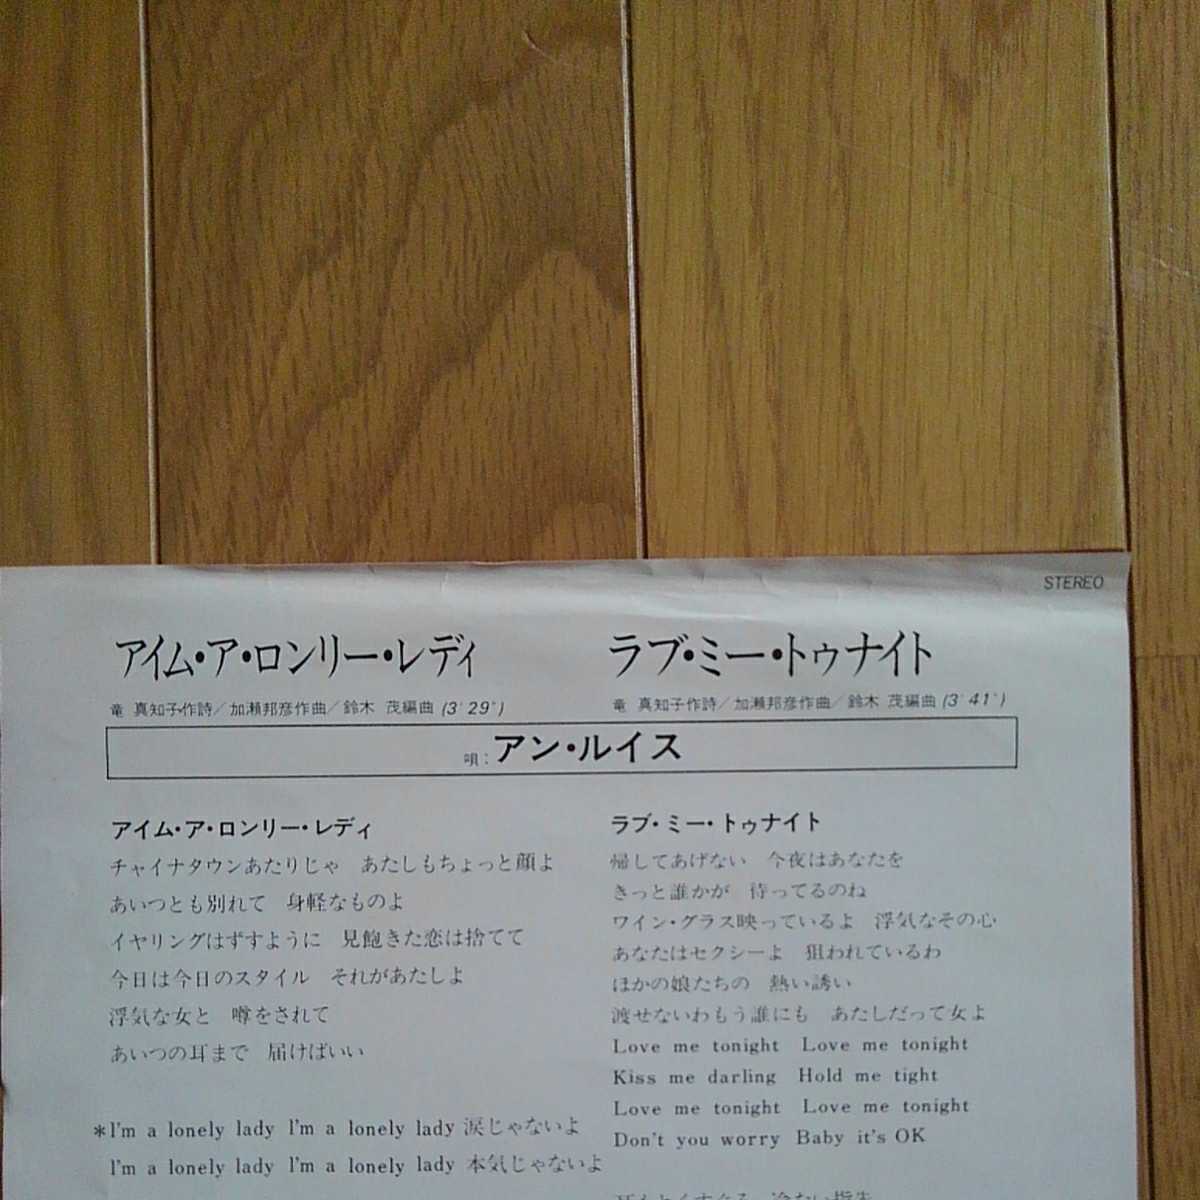 STEREO
アイム・ア・ロンリー・レディ
竜 真知子作詩／加瀬邦彦作曲／鈴木 茂編曲 (3'29")
ラブ・ミー・トゥナイト
竜 真知子作詩／加瀬邦彦作曲／鈴木 茂編曲 (3'41")
唄：アン・ルイス
アイム・ア・ロンリー・レディ
チャイナタウンあたりじゃ　あたしもちょっと顔よ
あいつとも別れて　身軽なものよ
イヤリングはずすように　見飽きた恋は捨てて
今日は今日のスタイル　それがあたしよ
浮気な女と　噂をされて
あいつの耳まで　届けばいい
*I'm a lonely lady I'm a lonely lady 涙じゃないよ
I'm a lonely lady I'm a lonely lady 本気じゃないよ
ラブ・ミー・トゥナイト
帰してあげない　今夜はあなたを
きっと誰かが　待ってるのね
ワイン・グラス映っているよ　浮気なその心
あなたはセクシーよ　狙われているわ
ほかの娘たちの　熱い誘い
渡せないわもう誰にも　あたしだって女よ
Love me tonight　Love me tonight
Kiss me darling　Hold me tight
Love me tonight　Love me tonight
Don't you worry　Baby it's OK